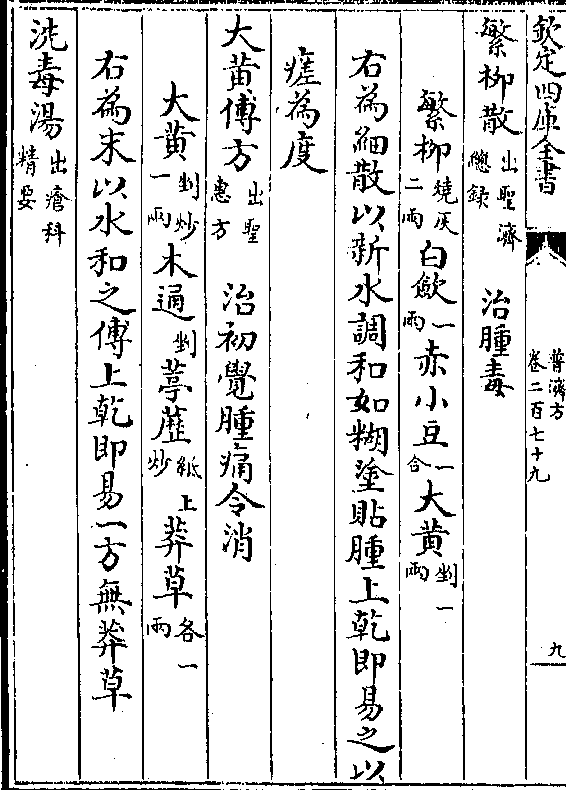 欽定四庫全書
普濟方
卷二百七十九
九
繁柳散出聖濟總録 治腫毒
繁柳燒灰二兩白歛一兩赤小豆一合大黄剉一兩
右為細散以新水調和如糊塗貼腫上乾即易之以
瘥為度
大黄傅方出聖惠方 治初覺腫痛令消
大黄剉炒一兩木通剉葶藶紙上炒莽草各一兩
右為末以水和之傅上乾即易一方無莽草
洗毒湯出瘡科精要